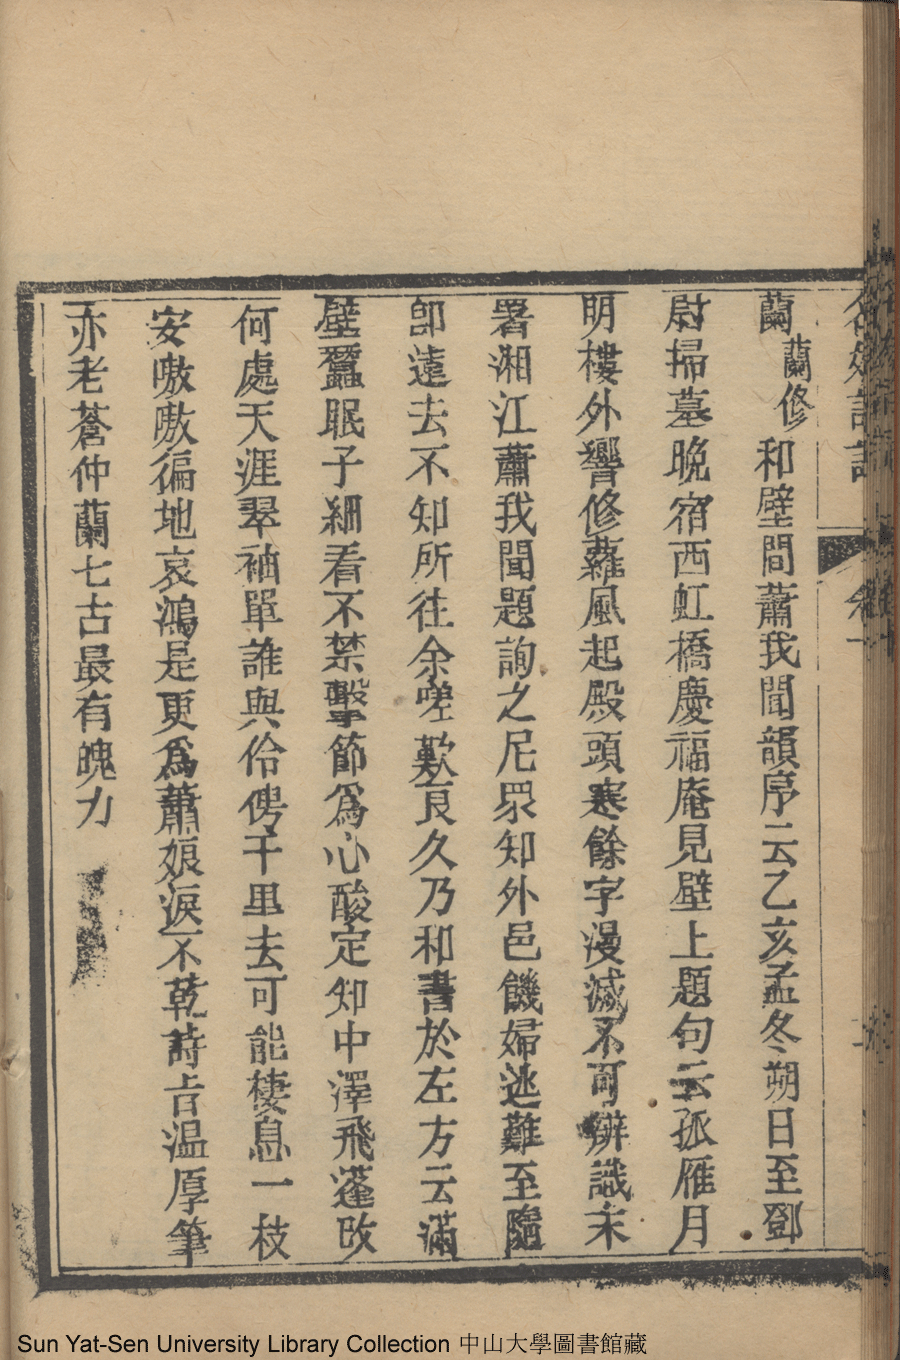 蘭蘭修和壁間蕭我聞韻序云乙亥孟冬朔日至鄧
尉掃墓晚宿西虹橋慶福庵見壁上題句云孤雁月
明樓外響修蘿風起殿頭寒餘字漫滅不可辨識末
署湘江蕭我聞題詢之尼眾知外邑饑婦逃難至隨
卽遠去不知所往余嗟歎良久乃和書於左方云滿
壁蠶眠子細看不禁擊節為心酸定知中澤飛蓬改
何處天涯翠袖單誰與伶俜千里去可能棲息一枝
安嗷嗷徧地哀鴻是更為蕭娘淚不乾詩旨温厚筆
亦老蒼仲蘭七古最有魄力
Sun Yat-Sen University Library Collection 中山大學圖書館藏